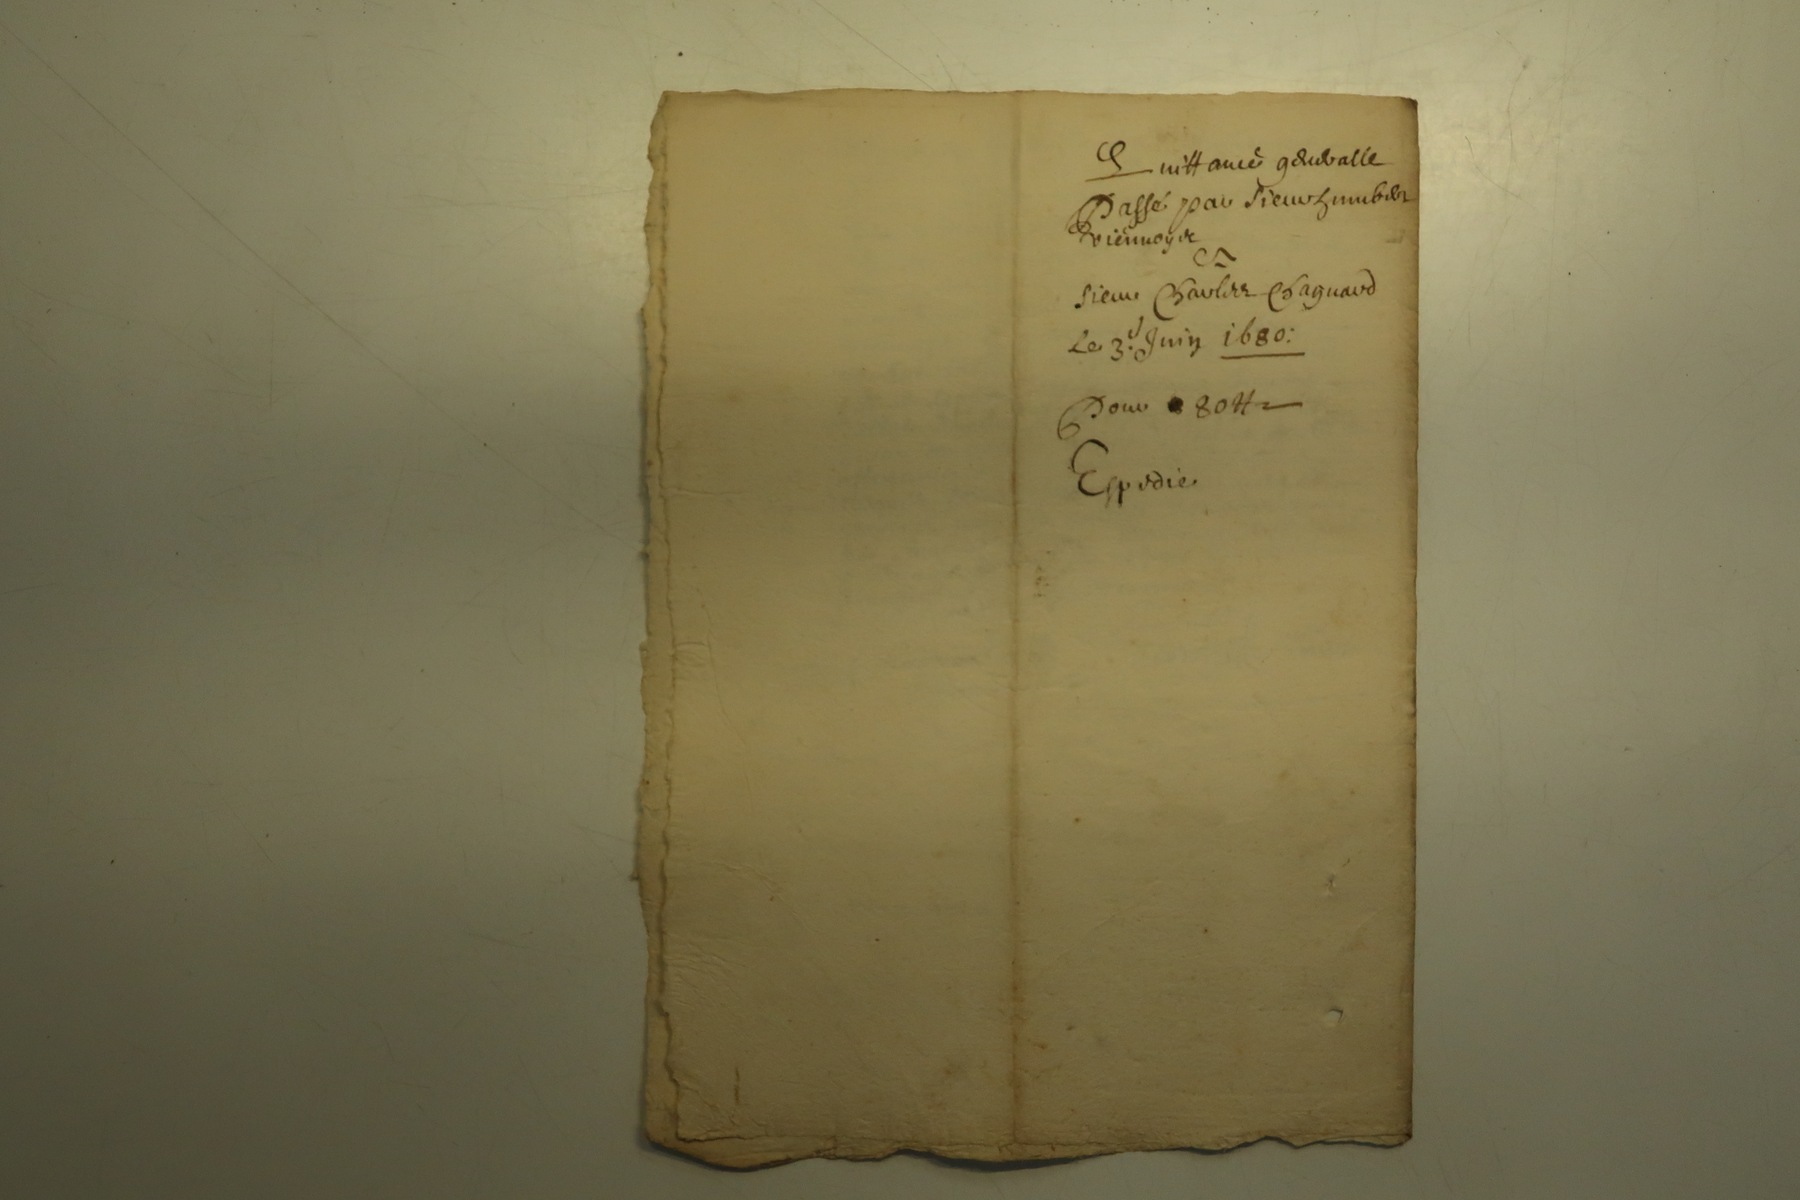 Quittance generalle
Passé par Sieur humber
viennoys
Et
Sieur Charles Chagnard
Le 3.e Juin 1680:
Pour 80 tt
Espedie